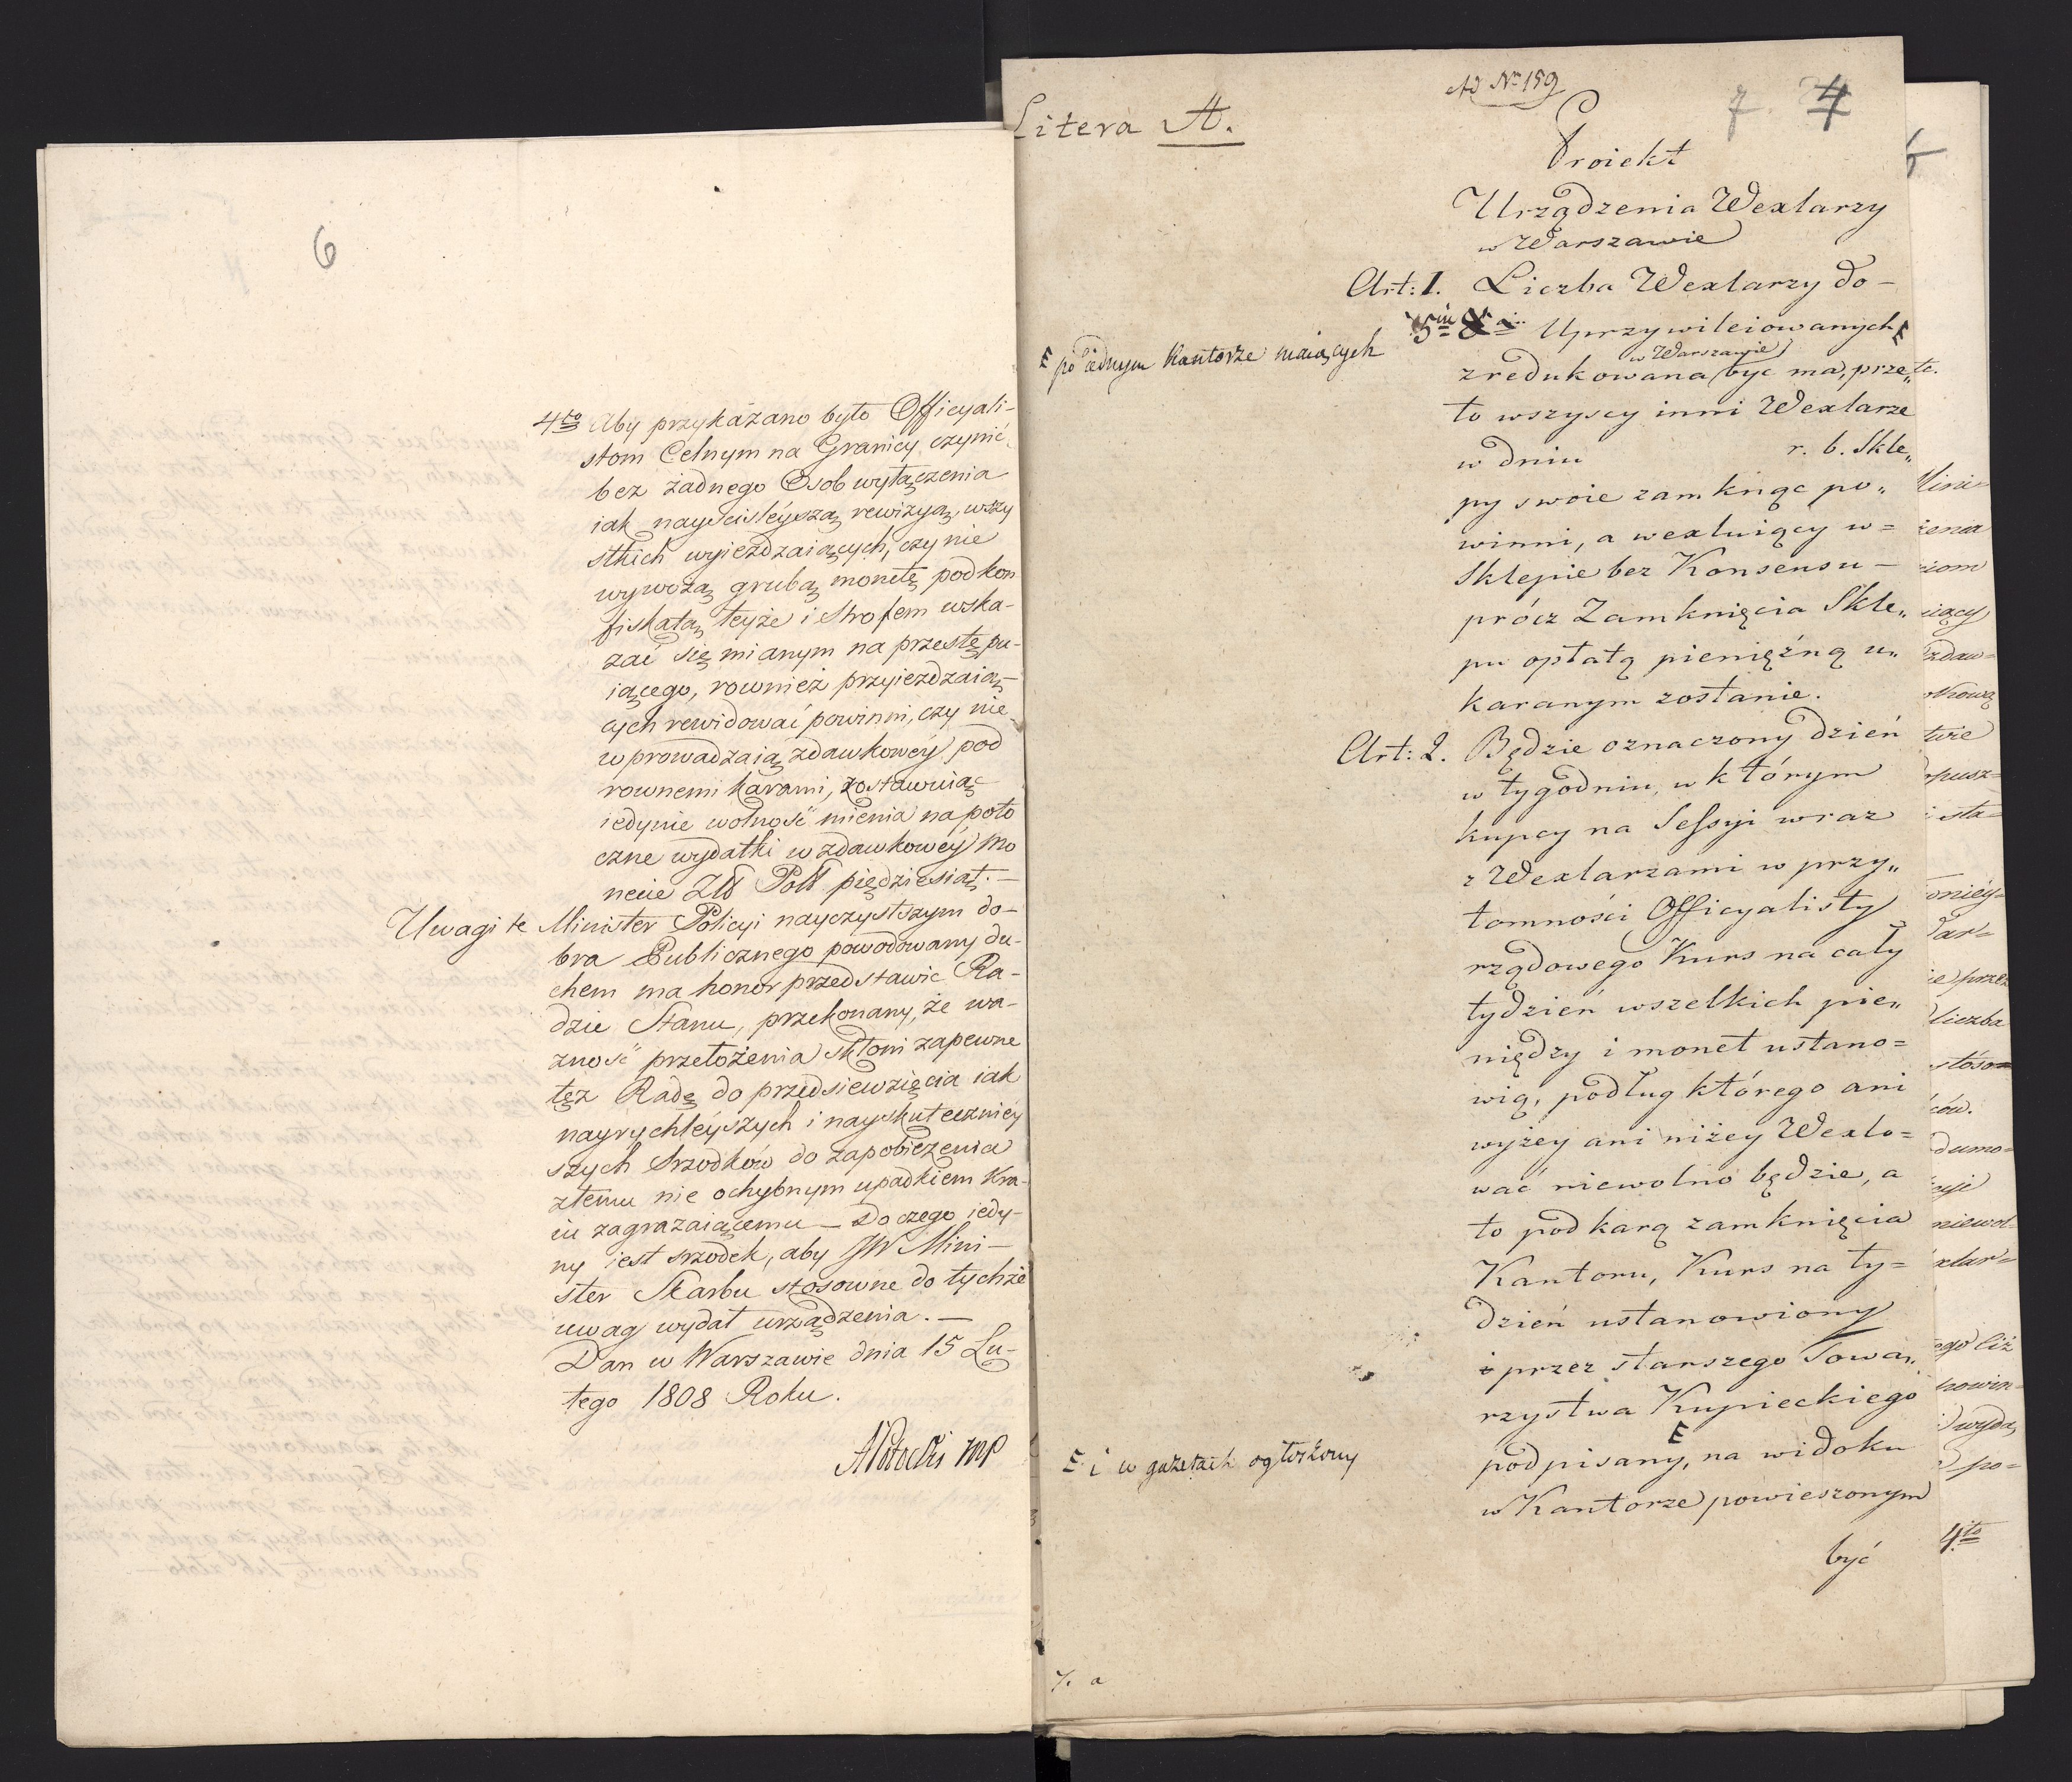 6
4to Aby przykazano było Officyali-
stom Celnym na Granicy, czynić
bez żadnego Osob wyłączenia
iak nayscisleyszą rewizyą, wszy
stkich wyieżdzaiących, czy nie
wywożą grubą monetę pod kon
fiskatą teyże i Strofem wska-
zać się mianym na przestępu-
iącego, rownież przyieżdzaią-
cych rewidować powinni, czy nie
wprowadzaią zdawkowey pod
rownemi karami, zostawuiąc
iedynie wolność mienia na poto
czne wydatki w zdawkowey mo
necie Złł Poll pięćdziesiąt. —
Uwagi te Minister Policyi nayczystszym do-
bra Publicznego powodowany du-
chem ma honor przedstawic Ra-
dzie Stanu, przekonany, że wa-
żność przełożenia skłoni zapewne
tęż Radę do przedsiewzięcia iak
nayrychleyszych i nayskuteczniey
szych Srzodków do zapobieżenia
złemu nie ochybnym upadkiem Kra-
iu zagrażaiącemu — Do czego iedy-
ny iest srzodek, aby JW Mini-
ster Skarbu stosowne do tychże
uwag wydał urządzenia. —
Dan w Warszawie dnia 15 Lu-
tego 1808 Roku.
APotocki mp
Ad Nr 159
Litera A.
7 4
Proiekt
Urządzenia Wexlarzy
w Warszawie
Art: 1. Liczba Wexlarzy do-
5iu Uprzywileiowanych
po iednym kantorze maiących
w Warszawie
zredukowana być ma, prze„
to wszyscy inni Wexlarze
w dniu r. b. Skle„
py swoie zamknąc po„
winni, a wexluiący w=
Sklepie bez Konsensu —
prócz Zamknięcia Skle„
pu opłatą pieniężną u„
karanym zostanie.
Art: 2. Będzie oznaczony dzień
w tygodniu, w którym
kupcy na Sessyi wraz
z Wexlarzami w przy„
tomności Officyalisty
rządowego Kurs na cały
tydzień wszelkich pie„
niędzy i monet ustano=
wią, podług którego ani
wyżey ani niżey Wexlo=
wać niewolno będzie, a
to pod karą zamknięcia
Kantoru, Kurs na ty=
dzień ustanowiony
i przez starszego Towa„
rzystwa Kupieckiego
podpisany, na widoku
i w gazetach ogłoszony
w Kantorze powieszonym
być
4to